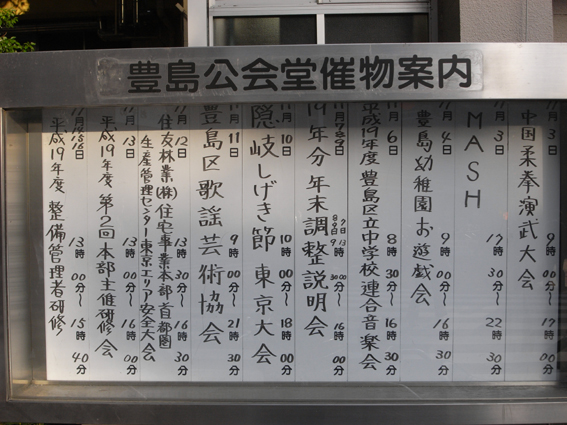 豊島公会堂催物案内
11月3日 中国柔拳演武大会 9時00分〜17時00分
11月3日 MASH 17時30分〜22時30分
11月4日 豊島幼稚園お遊戯会 9時00分〜16時30分
11月6日 平成19年度 豊島区立中学校連合音楽会 8時30分〜16時30分
11月7・8・9日 19年分 年末調整説明会 7日 13時30分 8日9日 9時30分〜16時00分
11月10日 隠岐しげさ節 東京大会 10時00分〜18時00分
11月11日 豊島区歌謡芸術協会 9時00分〜21時30分
11月12日 住友林業(株)住宅事業本部 首都圏生産管理センター東京エリア安全大会 13時30分〜16時30分
11月13日 平成19年度 第12回本部主催研修会 13時00分〜16時00分
平成19年度 整備管理者研修 13時00分〜15時40分